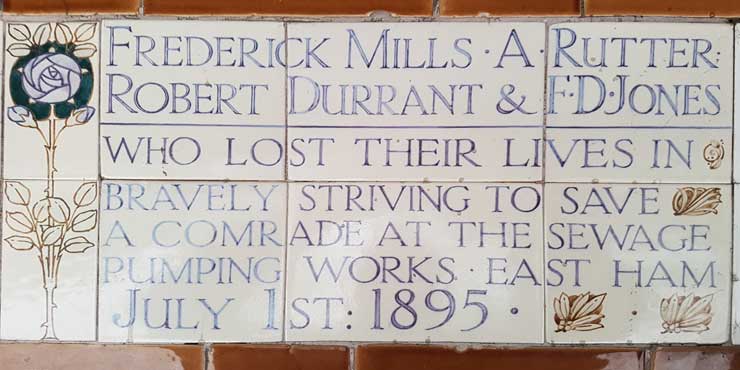 FREDERICK MILLS · A · RUTTER:
ROBERT DURRANT & F·D·JONES
WHO LOST THEIR LIVES IN
BRAVELY STRIVING TO SAVE
A COMRADE AT THE SEWAGE
PUMPING WORKS · EAST HAM
JULY 1ST: 1895 ·